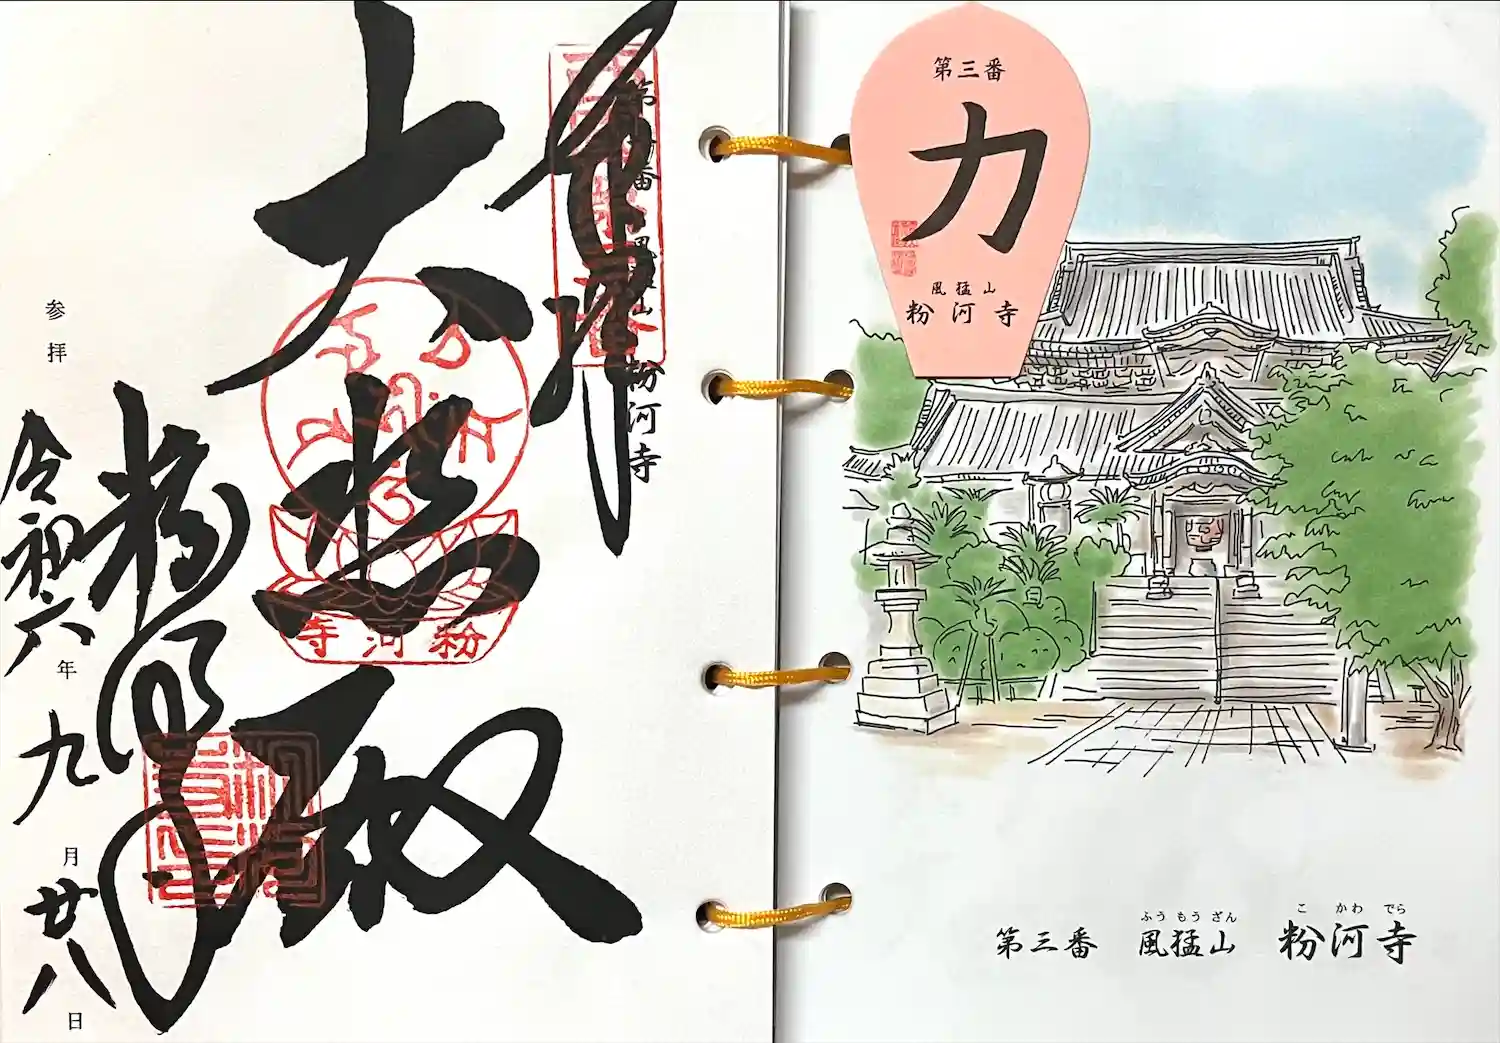 奉拝
第三番 風猛山 粉河寺
大悲殿
粉河寺
粉河寺
参拝
令和六年九月廿八日
第三番
力
風猛山
粉河寺
ふうもうざん こかわでら
第三番 風猛山 粉河寺